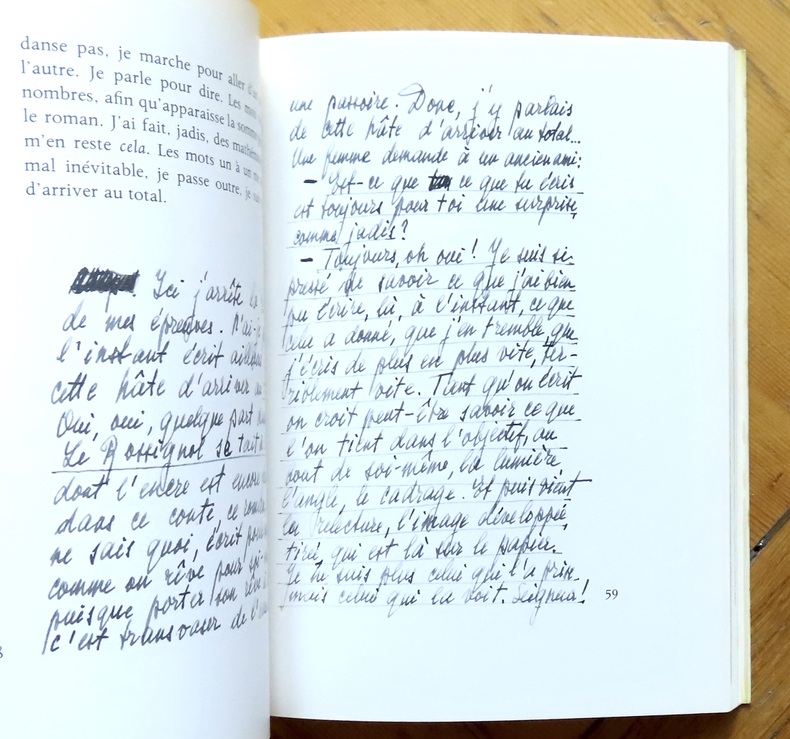 danse pas, je marche pour aller d'un
l'autre. Je parle pour dire. Les
nombres, afin qu'apparaisse la somme
le roman. J'ai fait, jadis, des
m'en reste cela. Les mots un à un
mal inévitable, je passe outre, je
d'arriver au total.
Ici j'arrête
de mes épreuves. N'ai-je
l'instant écrit
cette hâte d'arriver
Oui, oui, quelque part
Le Rossignol se tait
dont l'encre est encore
dans ce conte ce
ne sais quoi, écrit pour
comme on rêve pour
puisque porter son rêve
c'est transvaser de l'
8
une passoire. Donc, j'y parlais
de cette hâte d'arriver au total...
Une femme demande à un ancien ami:
— Est-ce que ce que tu écris
est toujours pour toi une surprise,
comme jadis?
— Toujours, oh oui! Je suis si
pressé de savoir ce que j'ai bien
pu écrire, là, à l'instant, ce que
cela a donné, que j'en tremble, que
j'écris de plus en plus vite, ter-
riblement vite. Tant qu'on écrit
on croit peut-être savoir ce que
l'on tient dans l'objectif, au
bout de soi-même, la lumière,
l'angle, le cadrage. Et puis vient
la relecture, l'image développée,
tirée, qui est là sur le papier.
Je ne suis plus celui qui l'a prise
mais celui qui la voit. Seigneur!
59